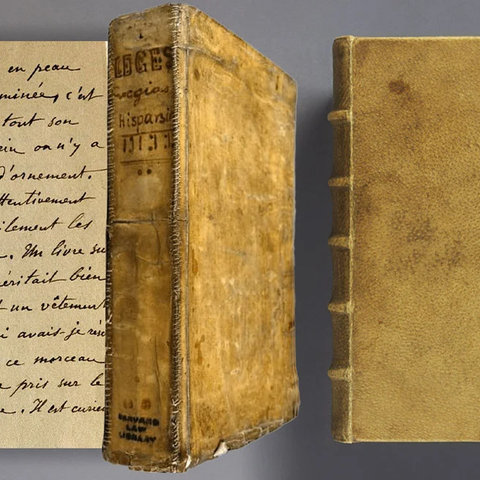 en peau
minée, c'est
tout son
ein on n'y a
d'ornement.
ttentivement
ilement les
. Un livre su
éritait bien
t un vêtement
i avais-je rés
ce morceau
e pris sur le
e. Il est curieu
LEGES
HARVARD
LAW
LIBRARY